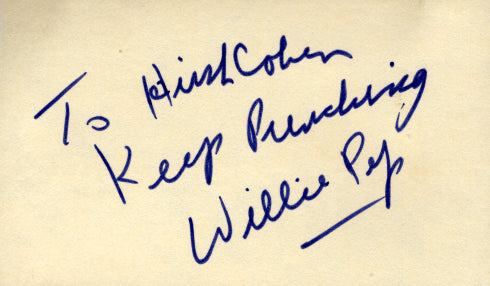 To Hirsh Cohen
Keep Punching
Willie Pep